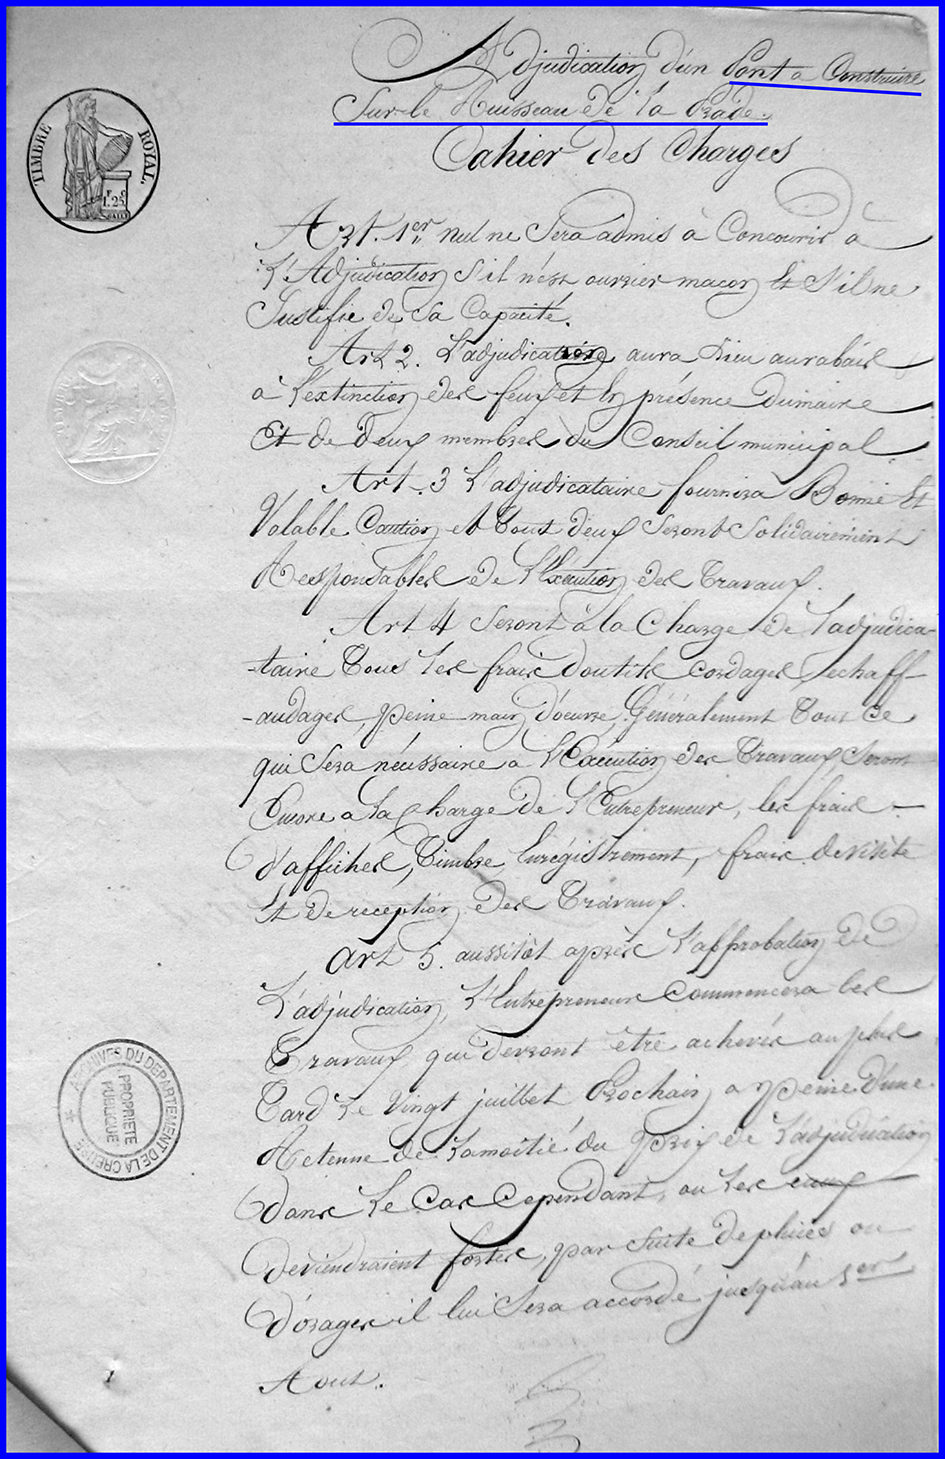 Adjudication d'un Pont a Construire
Sur le Ruisseau de la Prade.
Cahier des Charges
TIMBRE ROYAL.
F. C.
1.25
Art. 1er nul ne Sera admis à Concourir à
L'Adjudication S'il n'est ouvrier maçon Et S'il ne
Justifie de Sa Capacité.
Art 2. L'adjudicataire aura Lieu au rabais
à L'extinction des feux et En présence du maire
Et de deux membres du Conseil municipal
Art. 3 L'adjudicataire fournira Bonne Et
Valable Caution et Tout deux Seront Solidairement
Responsables de L'Exécution des Travaux.
Art 4 Seront à la Charge de l'adjudica-
-taire Tous les frais d'outils cordages, echaff-
-audages, peine main d'oeuvre, Généralement Tout Ce
qui Sera nécessaire a l'Exécution des Travaux, Seront
Encore a La Charge de l'Entrepreneur, les frais -
d'affiches, Timbre, Enrégistrement, frais de visite
Et de reception des Travaux.
Art 5. aussitôt après L'approbation de
L'adjudication, L'Entrepreneur Commencera les
Travaux qui devront être achevés au plus
Tard Le Vingt juillet Prochain, a peine d'une
Retenue de La moitié du Prix de L'adjudication
dans Le Cas Cependant, ou Les eaux
deviendraient fortes, par Suite de pluies ou
d'orages il lui Sera accordé jusqu'au 1er
Aout.
ARCHIVES DU DEPARTEMENT DE LA CREUSE
PROPRIETE
PUBLIQUE